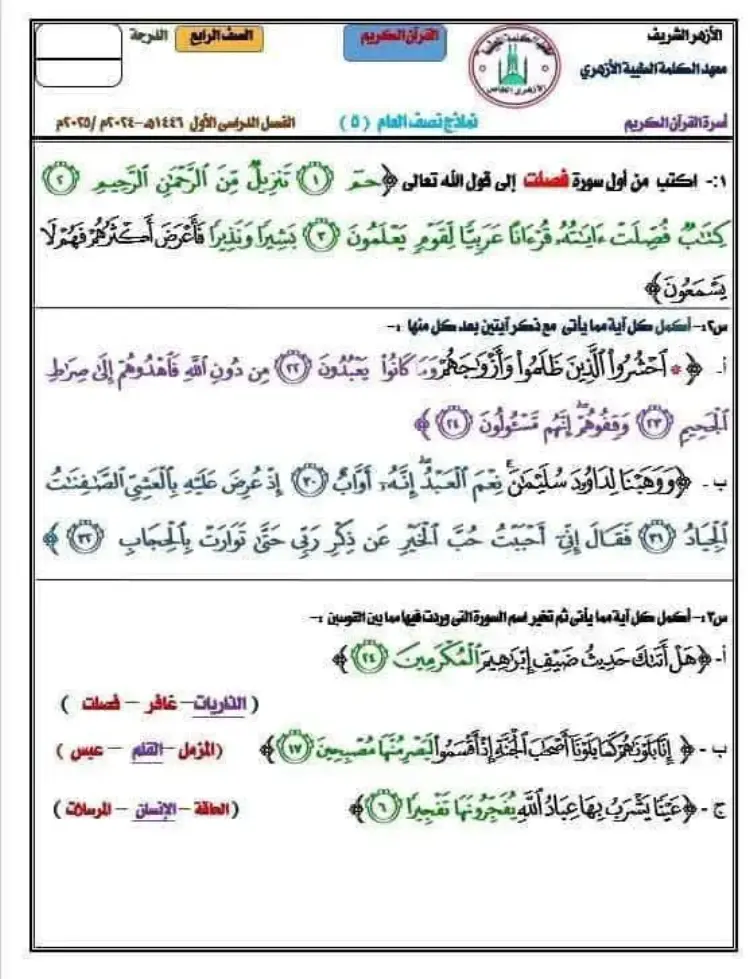 الأزهر الشريف
معهد الكلمة الطيبة الأزهري
أسرة القرآن الكريم
القرآن الكريم
الصف الرابع
الدرجة
نماذج نصف العام ( ٥ )
الفصل الدراسى الأول ١٤٤٦هـ-٢٠٢٤م /٢٠٢٥م
١:- اكتب من أول سورة فصلت إلى قول الله تعالى ﴿حمٓ ١ تَنزِيلٌ مِّنَ ٱلرَّحْمَٰنِ ٱلرَّحِيمِ ٢
كِتَٰبٌ فُصِّلَتْ ءَايَٰتُهُۥ قُرْءَانًا عَرَبِيًّا لِّقَوْمٍ يَعْلَمُونَ ٣ بَشِيرًا وَنَذِيرًا فَأَعْرَضَ أَكْثَرُهُمْ فَهُمْ لَا
يَسْمَعُونَ﴾
س٢:- أكمل كل آية مما يأتى مع ذكر آيتين بعد كل منها :-
أ- ﴿ * ٱحْشُرُوا۟ ٱلَّذِينَ ظَلَمُوا۟ وَأَزْوَٰجَهُمْ وَمَا كَانُوا۟ يَعْبُدُونَ ٢٢ مِن دُونِ ٱللَّهِ فَٱهْدُوهُمْ إِلَىٰ صِرَٰطِ
ٱلْجَحِيمِ ٢٣ وَقِفُوهُمْ إِنَّهُم مَّسْـُٔولُونَ ٢٤ ﴾
ب- ﴿وَوَهَبْنَا لِدَاوُۥدَ سُلَيْمَٰنَ نِعْمَ ٱلْعَبْدُ إِنَّهُۥٓ أَوَّابٌ ٣٠ إِذْ عُرِضَ عَلَيْهِ بِٱلْعَشِىِّ ٱلصَّٰفِنَٰتُ
ٱلْجِيَادُ ٣١ فَقَالَ إِنِّىٓ أَحْبَبْتُ حُبَّ ٱلْخَيْرِ عَن ذِكْرِ رَبِّى حَتَّىٰ تَوَارَتْ بِٱلْحِجَابِ ٣٢ ﴾
س٣:- أكمل كل آية مما يأتى ثم تخير اسم السورة التى وردت فيها مما بين القوسين :-
أ- ﴿هَلْ أَتَىٰكَ حَدِيثُ ضَيْفِ إِبْرَٰهِيمَ ٱلْمُكْرَمِينَ ٢٤ ﴾
( الذاريات – غافر – فصلت )
ب- ﴿ إِنَّا بَلَوْنَٰهُمْ كَمَا بَلَوْنَآ أَصْحَٰبَ ٱلْجَنَّةِ إِذْ أَقْسَمُوا۟ لَيَصْرِمُنَّهَا مُصْبِحِينَ ١٧ ﴾ (المزمل – القلم – عبس )
ج- ﴿عَيْنًا يَشْرَبُ بِهَا عِبَادُ ٱللَّهِ يُفَجِّرُونَهَا تَفْجِيرًا ٦ ﴾ (الحاقة – الإنسان – المرسلات )